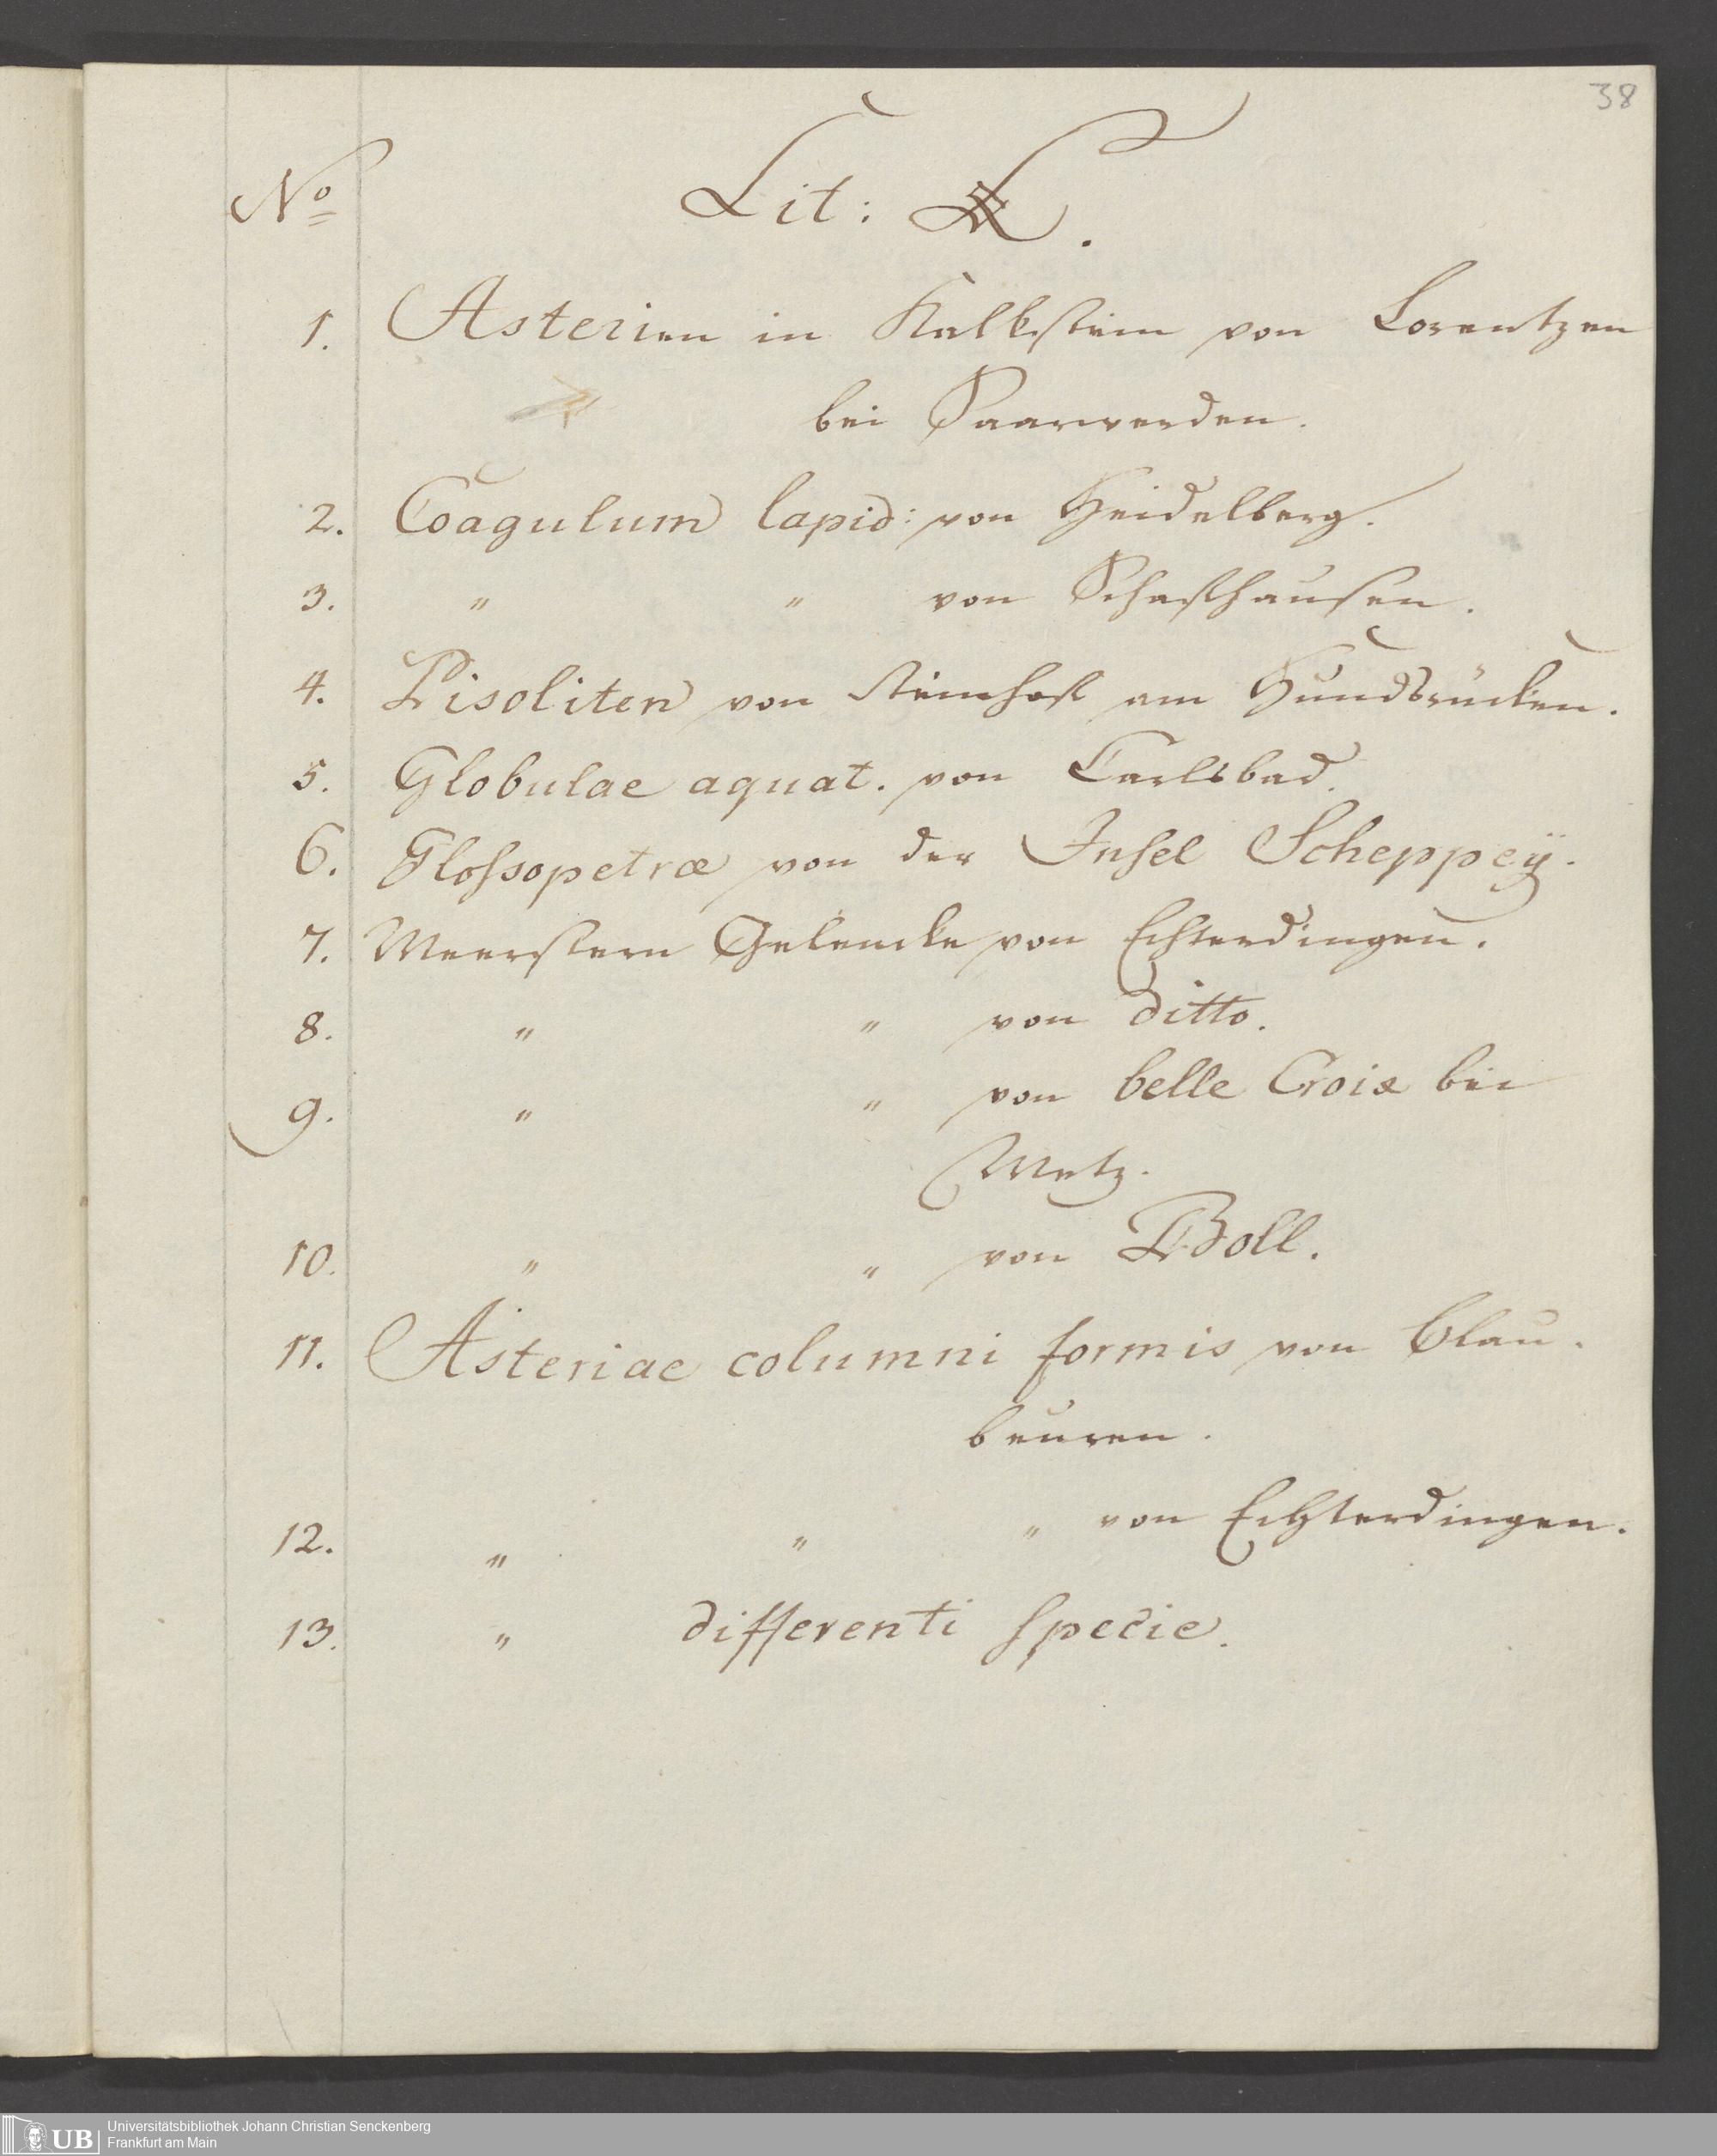 38
No Lit:
1. Asterien in Kalkstein von Lorentzen
bei Saarwerden.
2. Coagulum lapid: von Heidelberg.
3. " " von Schafhausen.
4. Pisoliten von am Hundsrücken.
5. Globulae aquat. von Carlsbad.
6. Glossopetræ von der Insel Scheppeÿ.
7. Meerstern Gelencke von Echterdingen.
8. " " von ditto.
9. " " von belle Croix bei
Metz.
10. " " von Boll.
11. Asteriae columni formis von Blau-
beuren.
12. " " " von Echterdingen.
13. " differenti specie.
UB Universitätsbibliothek Johann Christian Senckenberg
Frankfurt am Main